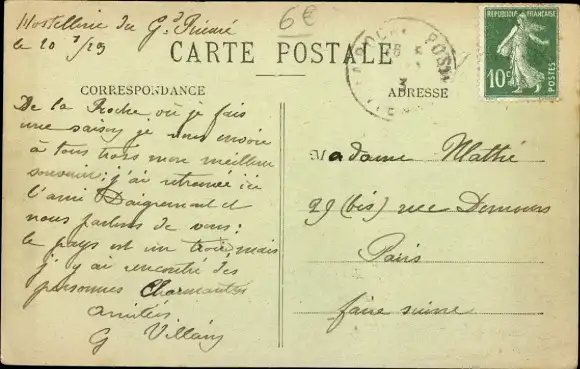 Hostellerie du Gd Prieuré
le 10 7/23
6€
CARTE POSTALE
CORRESPONDANCE
ADRESSE
LA ROCHE POSAY
REPUBLIQUE FRANÇAISE
10c
POSTES
De la Roche, où je fais
une saison je vous envoie
à tous trois mon meilleur
souvenir; j'ai retrouvé ici
l'ami Daigremont et
nous parlons de vous:
le pays est un trou mais
j'y ai rencontré des
personnes Charmantes
amitiés
G Villain
Madame Mathé
29 (bis) rue Demours
Paris
faire suivre